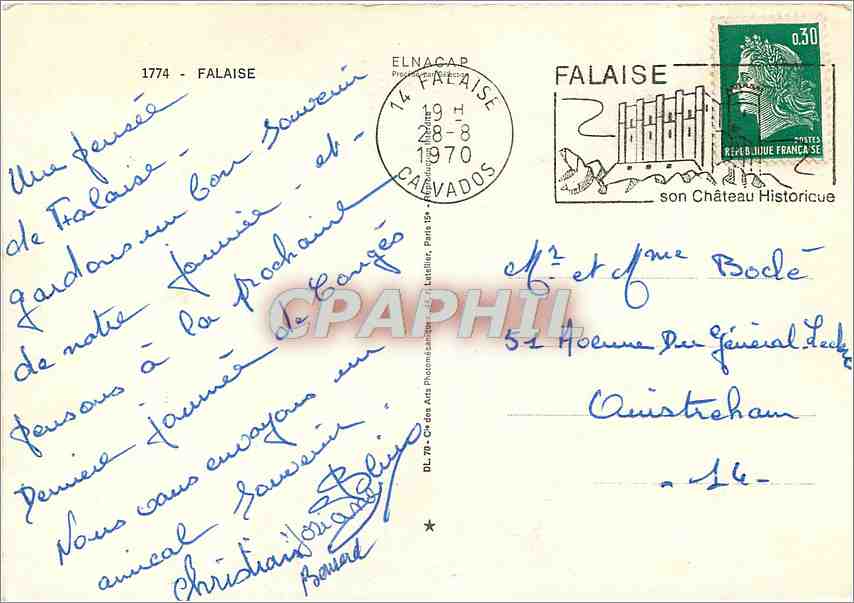 1774 - FALAISE
Une pensée
de Falaise -
gardons un bon souvenir
de notre journée - et -
pensons à la prochaine
Derniere journée de Congés
Nous vous envoyons un
amical souvenir.
Christian Josiane
Bernard
ELNACAP
14 FALAISE
19 H
28-8
1970
CALVADOS
FALAISE
son Château Historique
0,30
POSTES
REPUBLIQUE FRANÇAISE
DL. 70 - Cie des Arts Photomécaniques, Letellier, Paris 15e - Reproduction interdite
CPAPHIL
Mr et Mme Boclé
51 Avenue Du Général Leclerc
Ouistreham
- 14 -